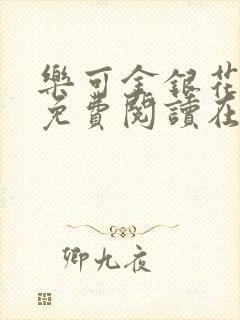 樂可金銀花
免費閱讀在
卿九夜